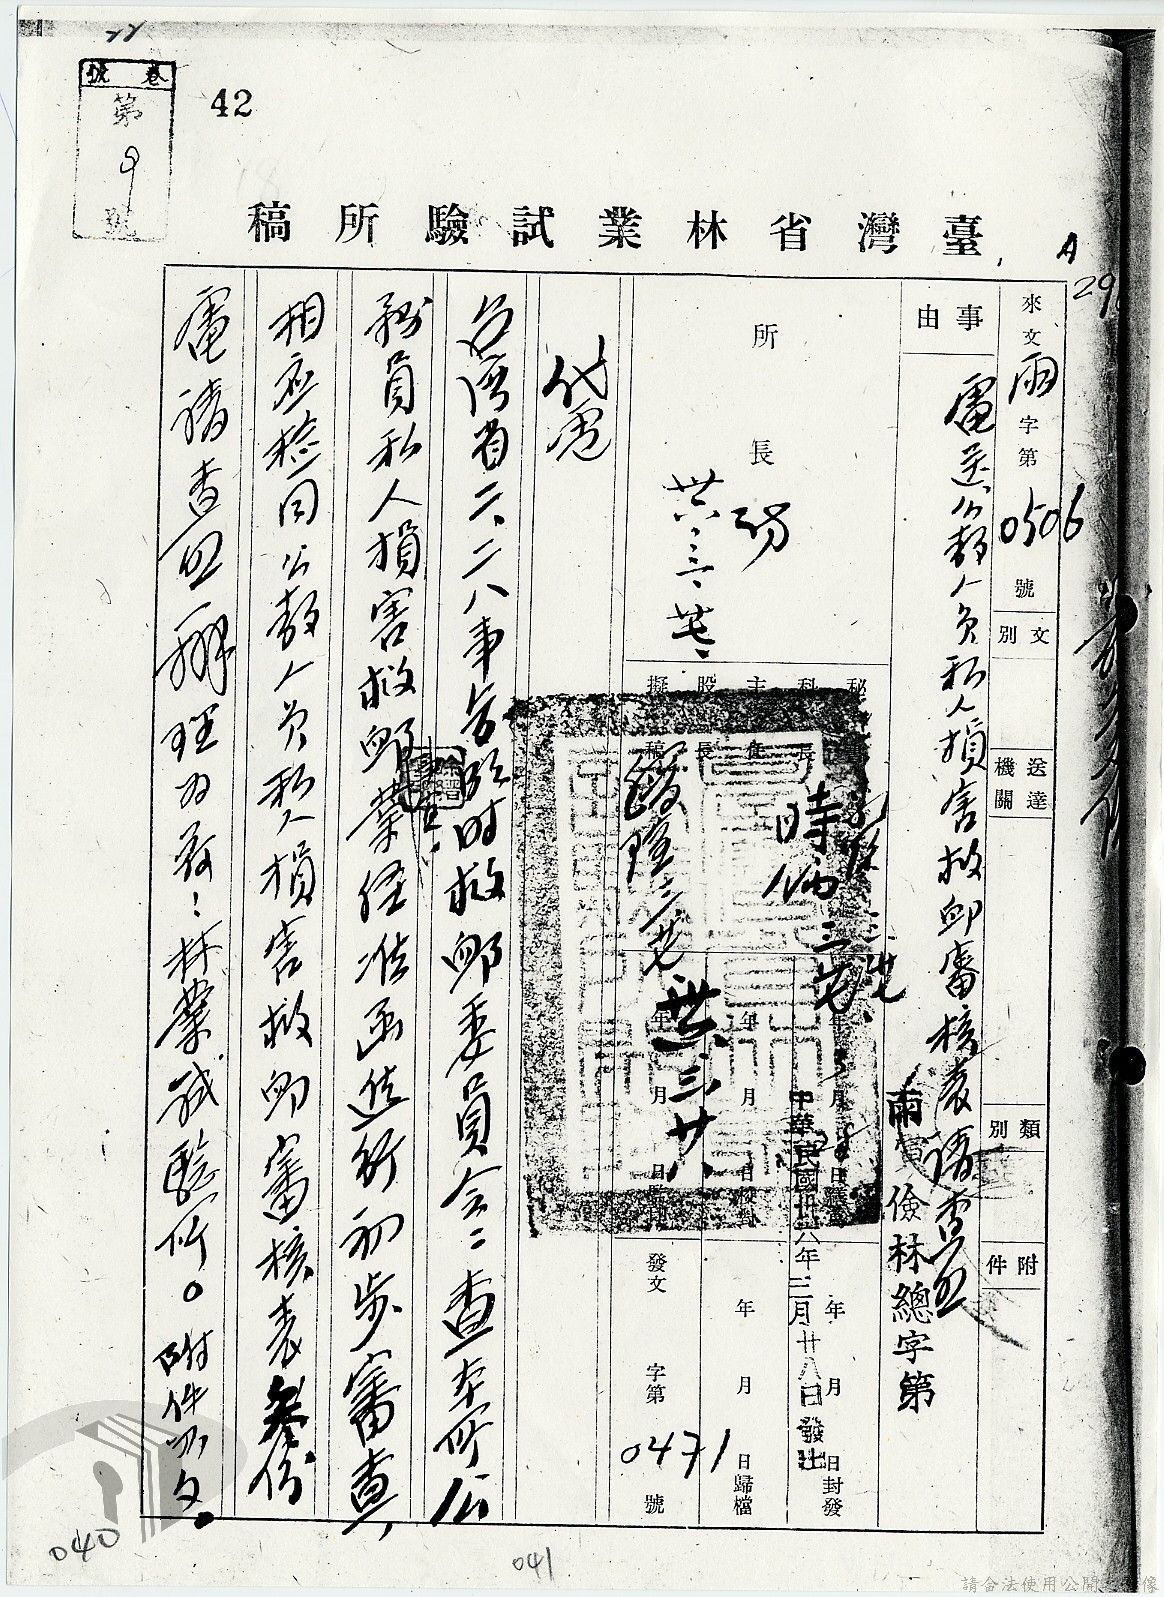 卷號
第
9
號
42
臺灣省林業試驗所稿
A
29
來文雨字第0506號
文別
送達機關
類別
附件
事由
電送公教人員私人損害救卹審核表請查照
雨寅儉林總字第
所長
卅六、三、廿七、
秘
科長
主任
股長
擬稿
時倆三、廿七、
卅六、三、廿八
中華民國卅六年三月廿八日發出
年月日封發
年月日歸檔
發文
字第0471號
代電
台灣省二、二八事件臨時救卹委員會：查本所公
務員私人損害救卹業經准函進行初步審查，
相应檢同公教人員私人損害救卹審核表叁份
電請查照辦理为荷！林業試驗所。附件如文。
040
041
請合法使用公開影像